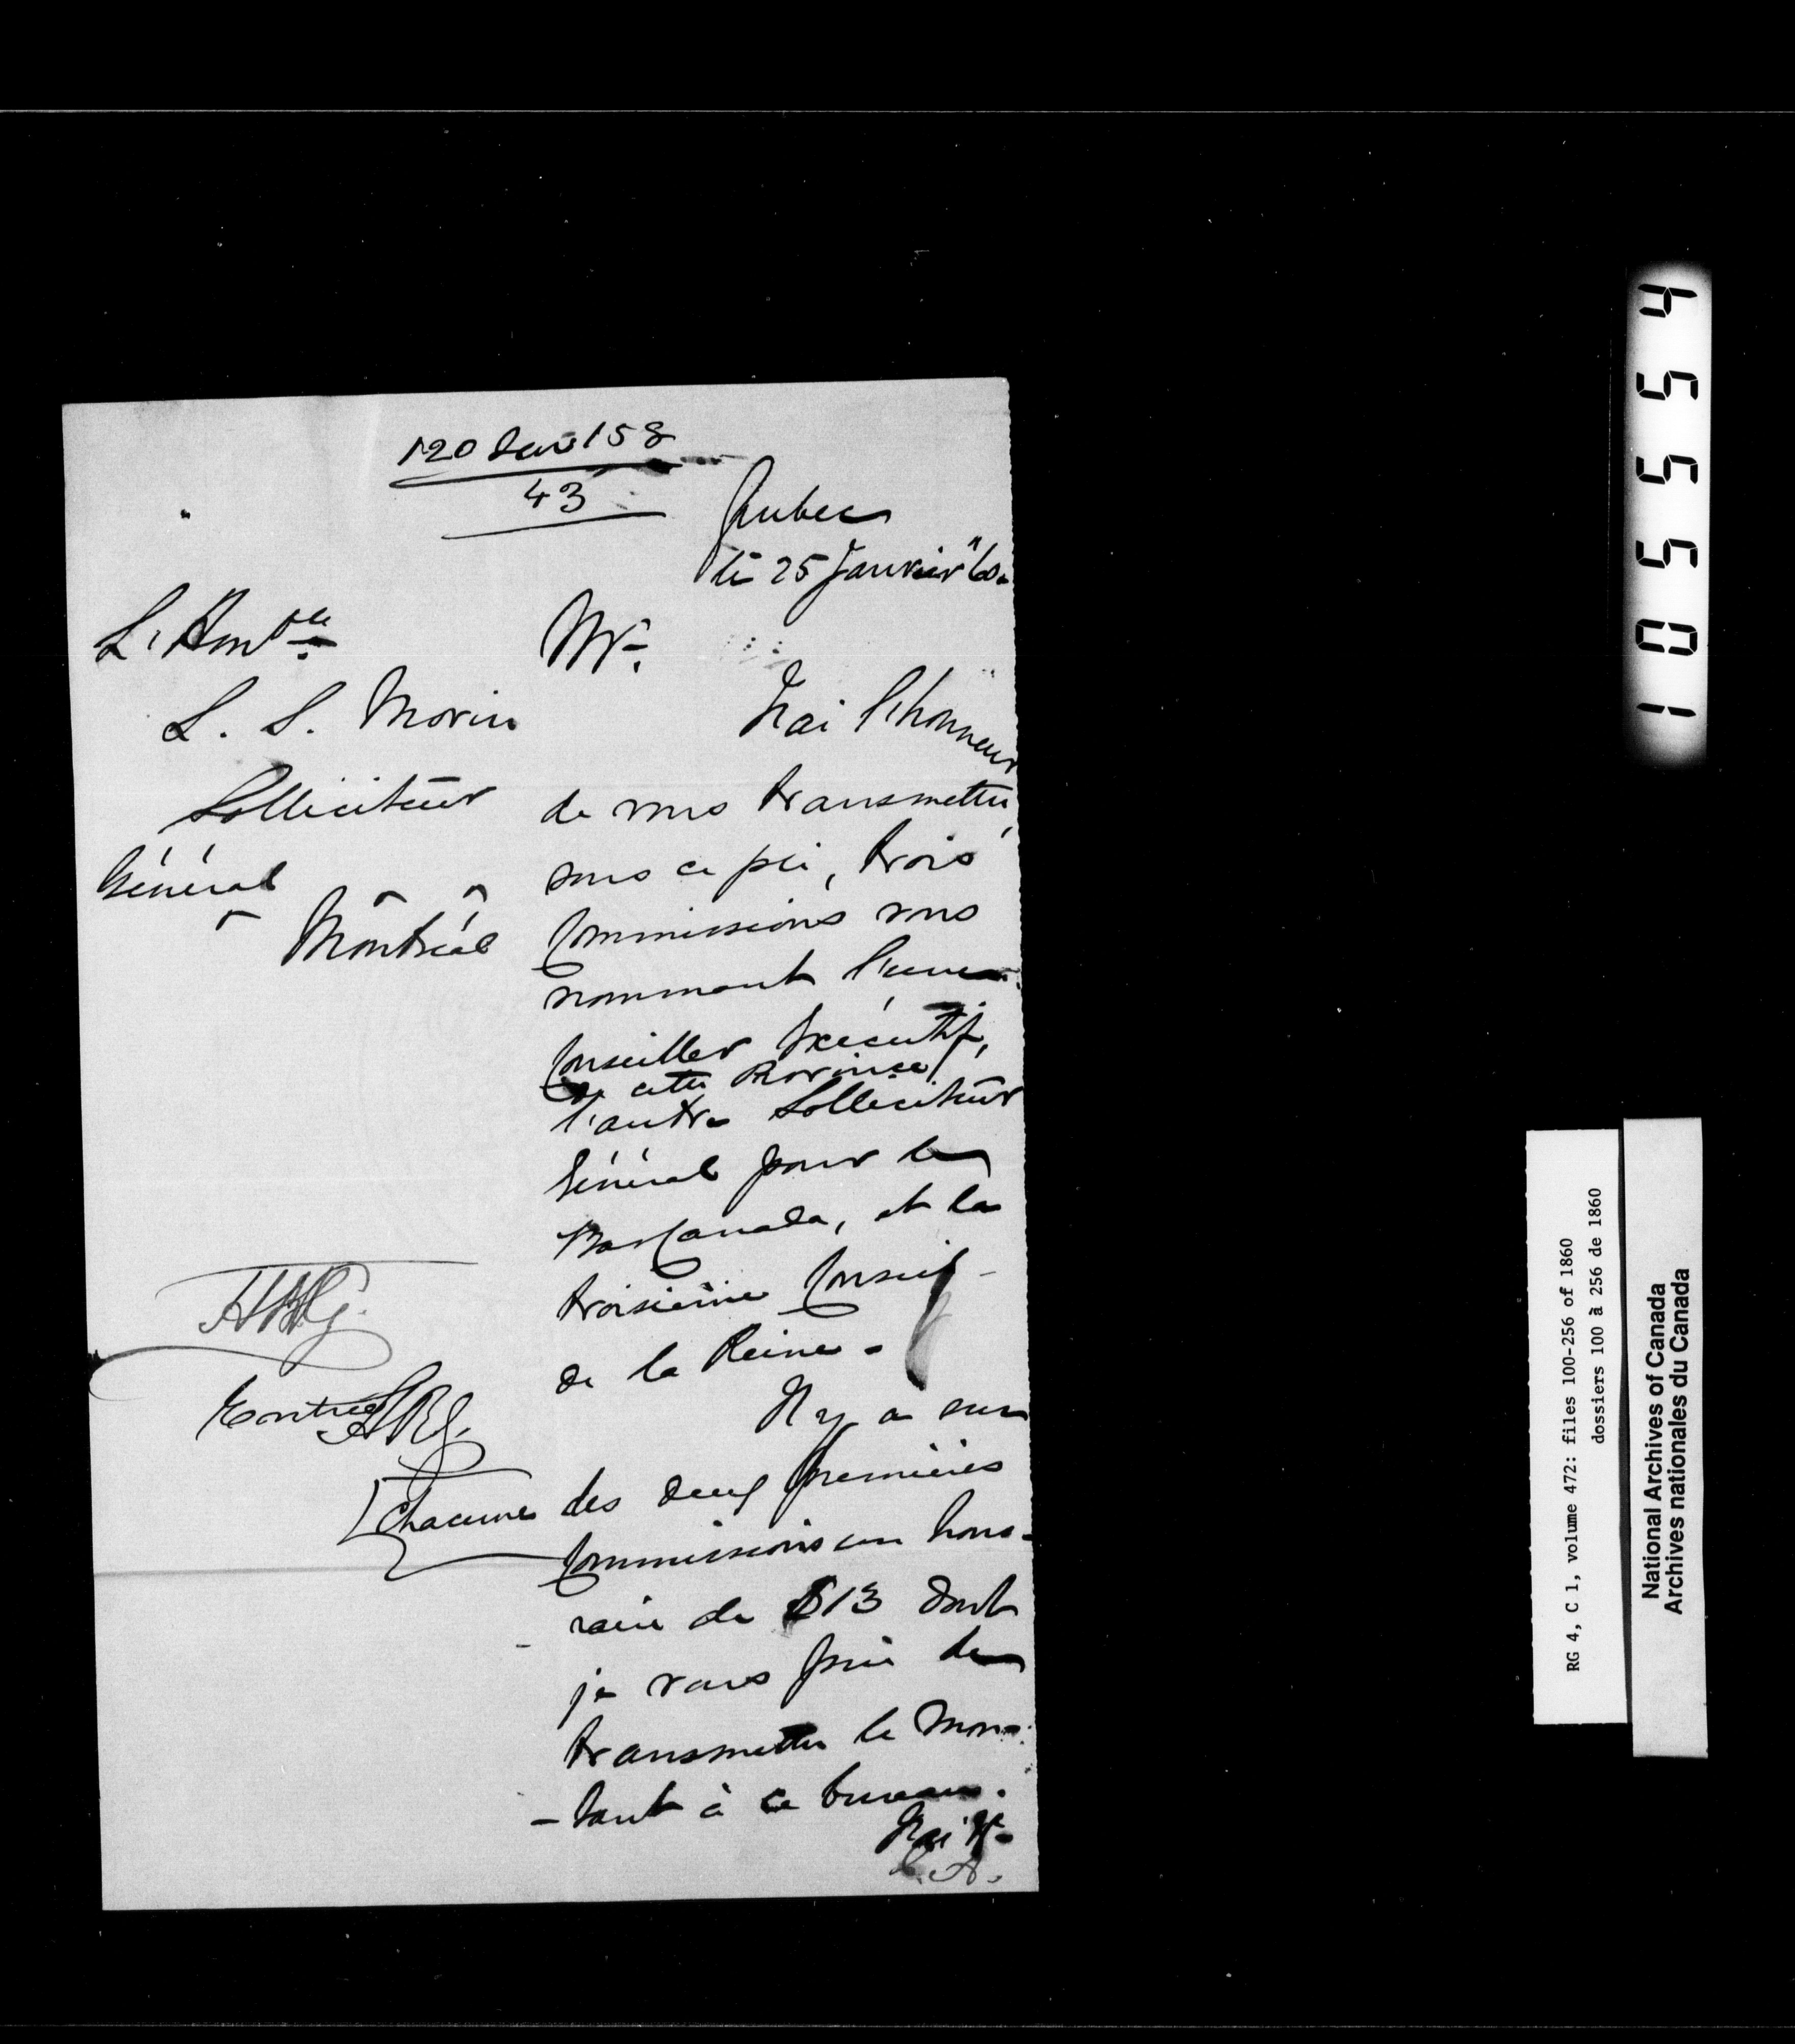 120 158
43
Quebec
le 25 Janvier "60.
L'Honble
L. S. Morin
Solliciteur
Général
Montréal
Mr.
J'ai l'honneur
de vous transmettre,
sous ce pli, trois
Commissions vous
nommant l'une
Conseiller Exécutif,
de cette Province,
l'autre Solliciteur
Général pour le
Bas Canada, et la
troisième Conseil
de la Reine.
Entrée
Il y a sur
[Chacune des deux premières
Commissions un hono-
raire de $13 dont
je vous prie de
transmettre le mon-
-tant à ce bureau.
J'ai &c
C. A.
105554
RG 4, C 1, volume 472: files 100-256 of 1860
dossiers 100 à 256 de 1860
National Archives of Canada
Archives nationales du Canada